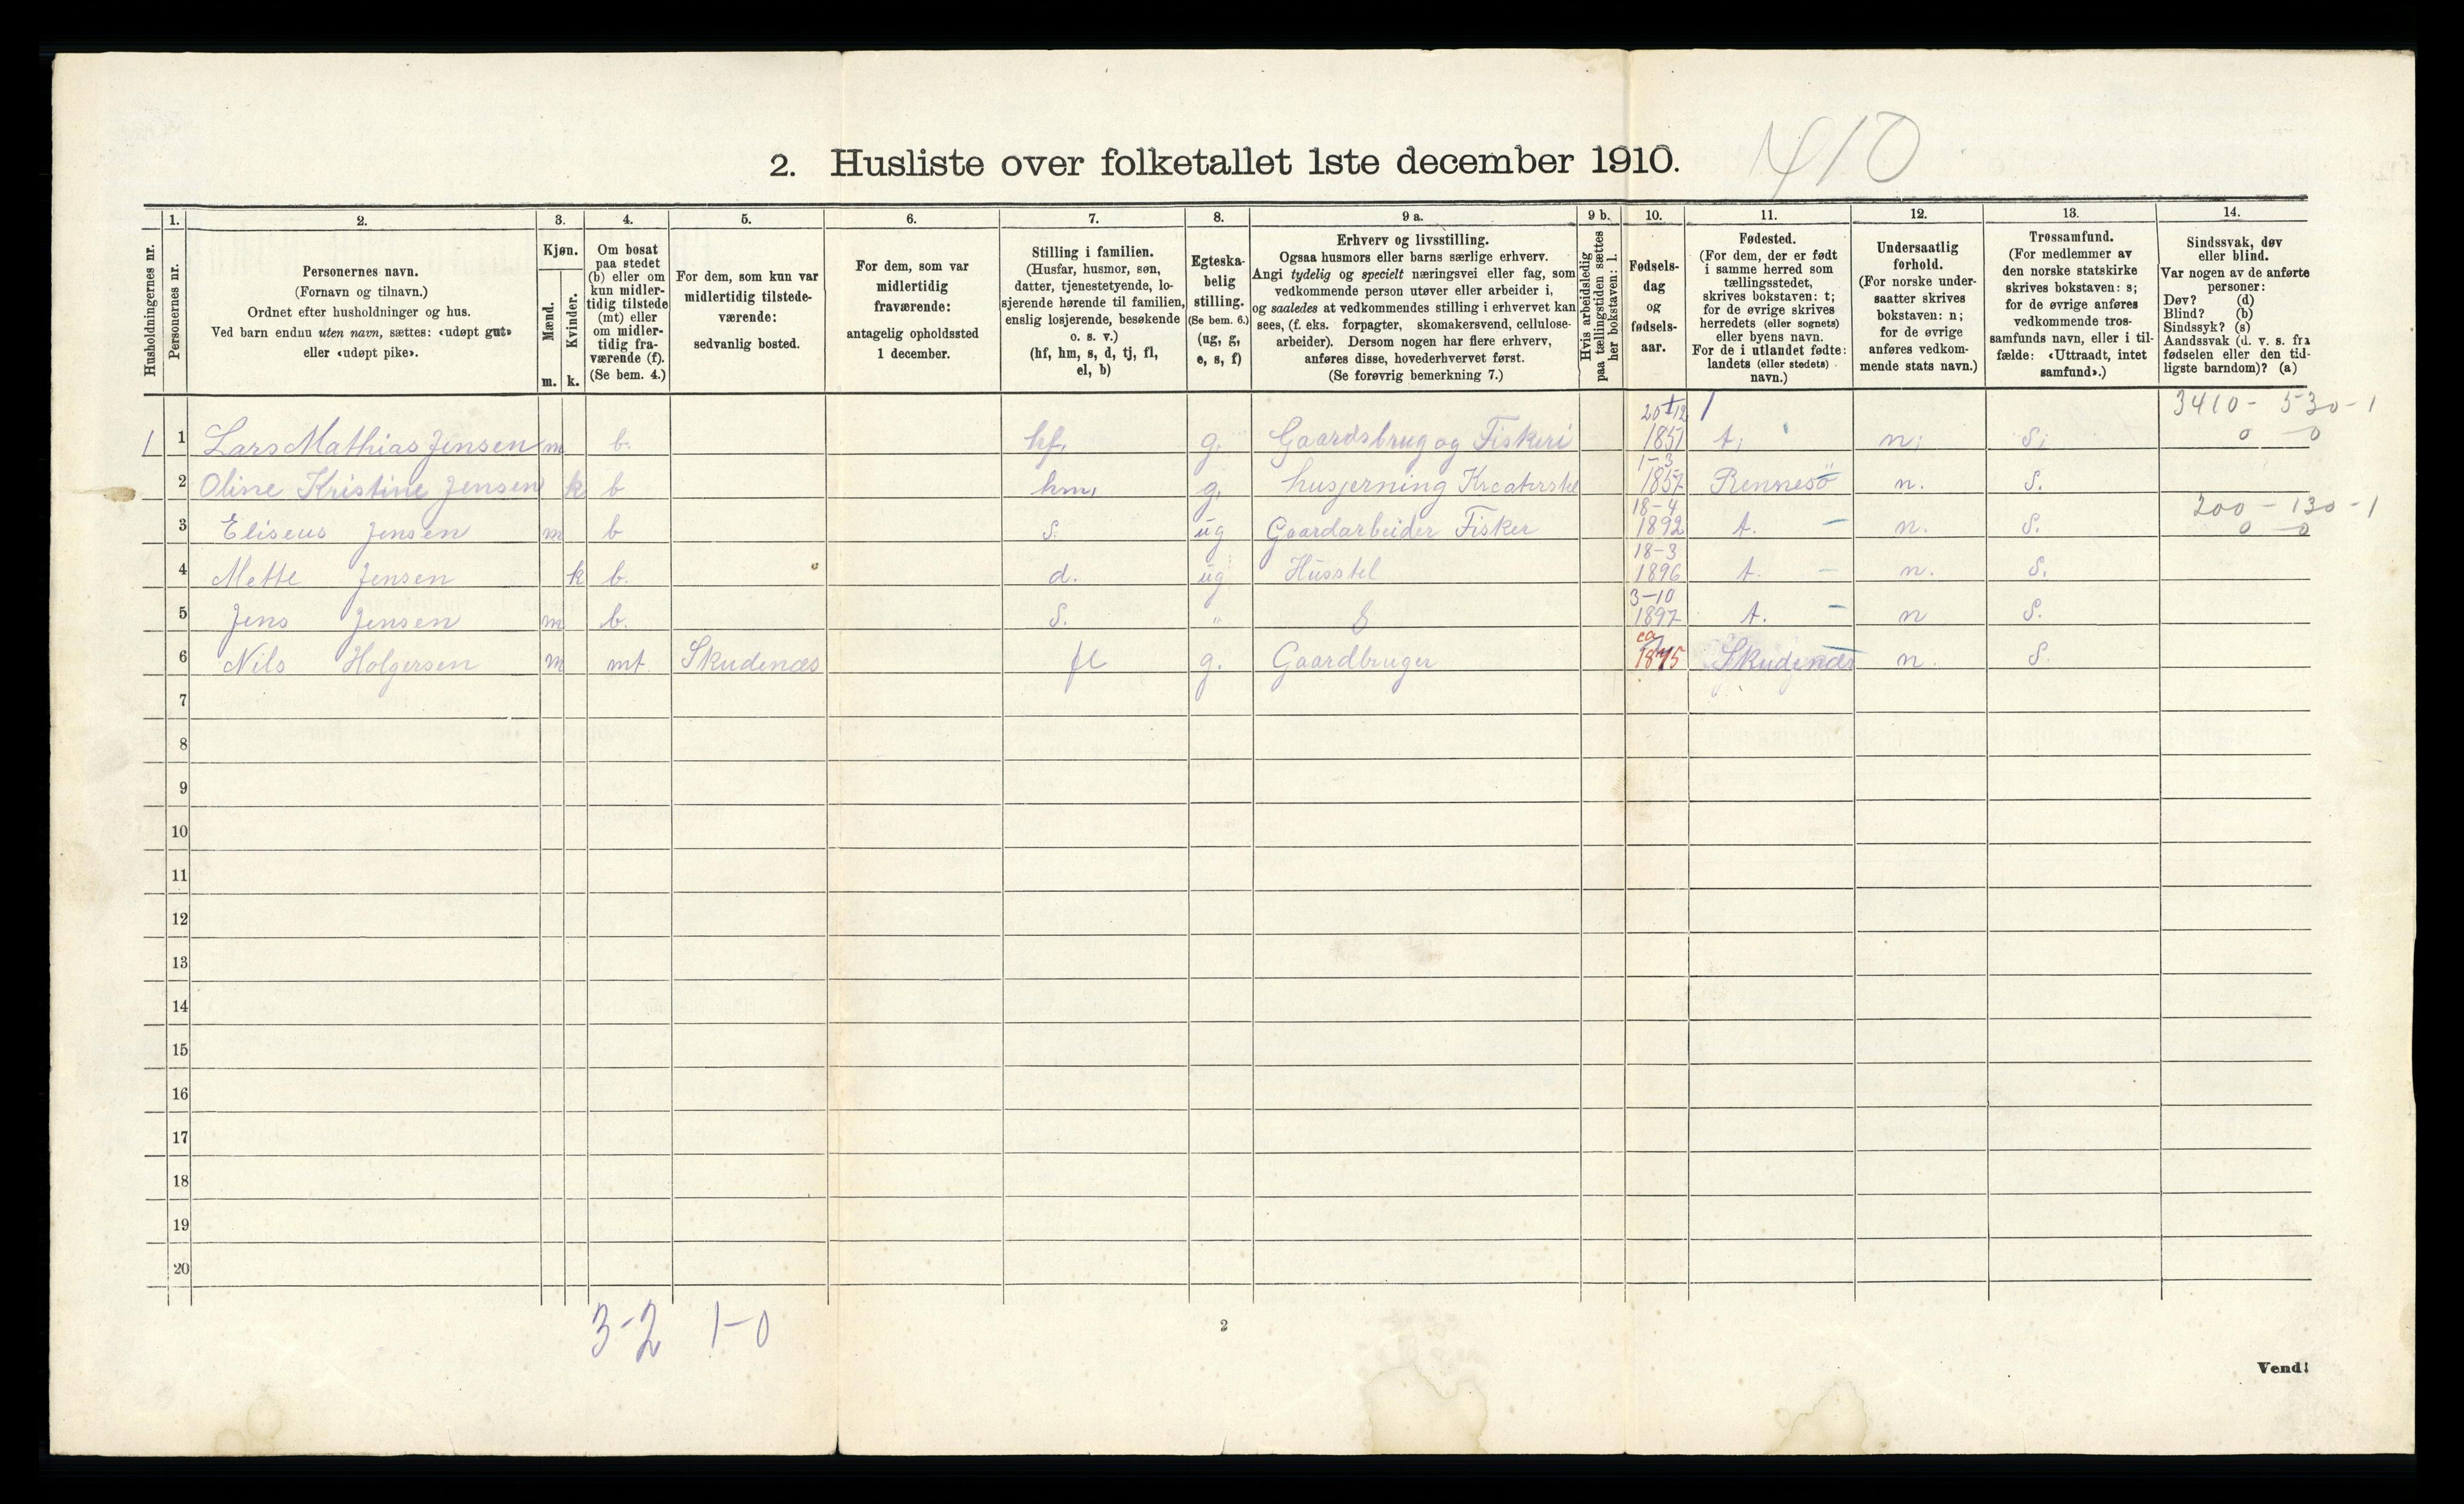 410
2. Husliste over folketallet 1ste december 1910.
Husholdningernes nr.
1.
Personernes nr.
2.
Personernes navn.
(Fornavn og tilnavn.)
Ordnet efter husholdninger og hus.
Ved barn endnu uten navn, sættes: «udøpt gut»
eller «udøpt pike».
3.
Kjøn.
Mænd.
Kvinder.
m. k.
4.
Om bosat
paa stedet
(b) eller om
kun midler-
tidig tilstede
(mt) eller
om midler-
tidig fra-
værende (f).
(Se bem. 4.)
5.
For dem, som kun var
midlertidig tilstede-
værende:
sedvanlig bosted.
6.
For dem, som var
midlertidig
fraværende:
antagelig opholdssted
1 december.
7.
Stilling i familien.
(Husfar, husmor, søn,
datter, tjenestetyende, lo-
sjerende hørende til familien,
enslig losjerende, besøkende
o. s. v.)
(hf, hm, s, d, tj, fl,
el, b)
8.
Egteska-
belig
stilling.
(Se bem. 6.)
(ug, g,
e, s, f)
9 a.
Erhverv og livsstilling.
Ogsaa husmors eller barns særlige erhverv.
Angi tydelig og specielt næringsvei eller fag, som
vedkommende person utøver eller arbeider i,
og saaledes at vedkommendes stilling i erhvervet kan
sees, (f. eks. forpagter, skomakersvend, cellulose-
arbeider). Dersom nogen har flere erhverv,
anføres disse, hovederhvervet først.
(Se forøvrig bemerkning 7.)
9 b.
Hvis arbeidsledig
paa tællingstiden sættes
her bokstaven: l.
10.
Fødsels-
dag
og
fødsels-
aar.
11.
Fødested.
(For dem, der er født
i samme herred som
tællingsstedet,
skrives bokstaven: t;
for de øvrige skrives
herredets (eller sognets)
eller byens navn.
For de i utlandet fødte:
landets (eller stedets)
navn.)
12.
Undersaatlig
forhold.
(For norske under-
saatter skrives
bokstaven: n;
for de øvrige
anføres vedkom-
mende stats navn.)
13.
Trossamfund.
(For medlemmer av
den norske statskirke
skrives bokstaven: s;
for de øvrige anføres
vedkommende tros-
samfunds navn, eller i til-
fælde: «Uttraadt, intet
samfund».)
14.
Sindssvak, døv
eller blind.
Var nogen av de anførte
personer:
Døv? (d)
Blind? (b)
Sindssyk? (s)
Aandssvak (d. v. s. fra
fødselen eller den tid-
ligste barndom)? (a)
20 12 3410 - 530 - 1
1 1 Lars Mathias Jensen m b. hf. g. Gaardsbrug og Fiskeri 1851 t. n. S. 0 0
1-3
2 Oline Kristine Jensen k b hm. g. husgerning Kreaturstel 1857 Rennesö n. S.
18-4 200 - 130 - 1
3 Eliseus Jensen m b s. ug Gaardarbeider Fisker 1892 t. n. S. 0 0
18-3
4 Mette Jensen k b. d. ug Husstel 1896 t. n. S.
3-10
5 Jens Jensen m b. s. " 1897 t. n S.
ca
6 Nils Holgersen m mt. Skudenæs fl g. Gaardbruger 1875 Skudenæs n. S.
7
8
9
10
11
12
13
14
15
16
17
18
19
20
3-2 1-0
2
Vend!